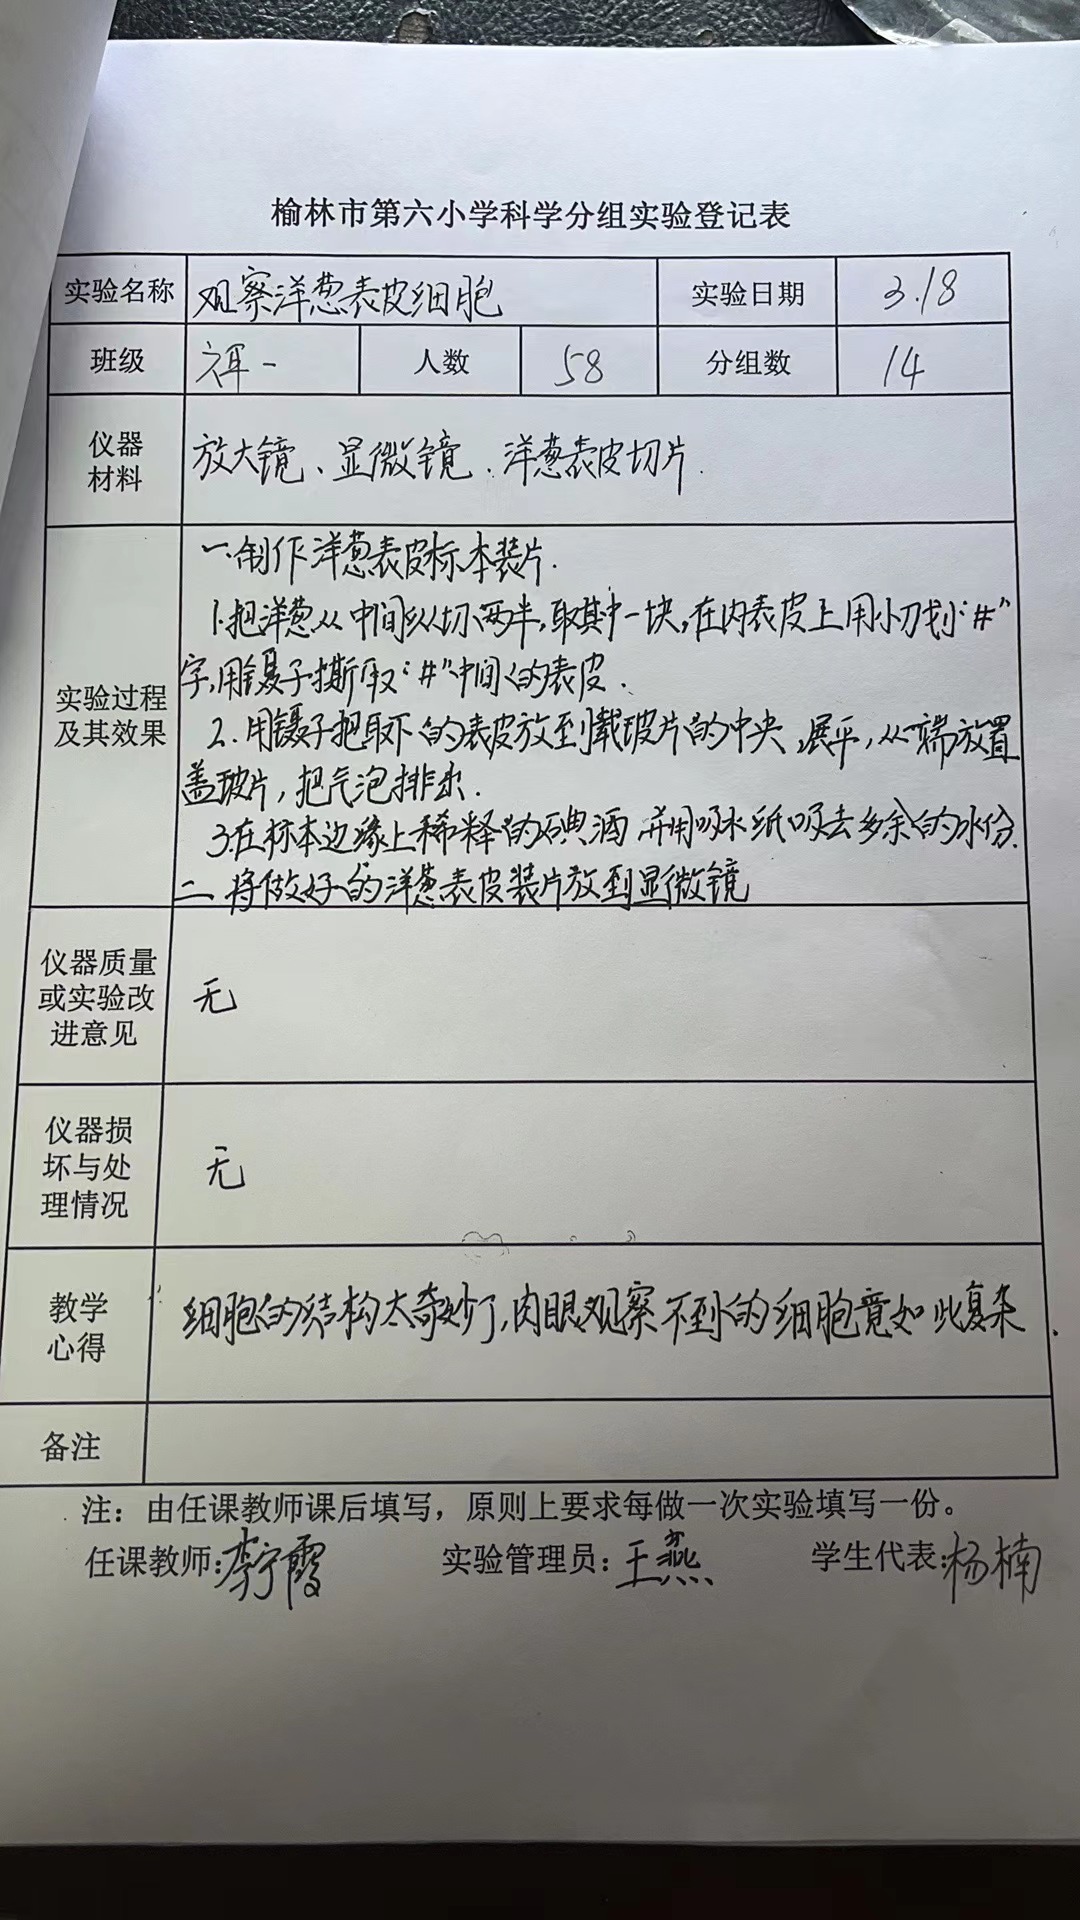 榆林市第六小学科学分组实验登记表
实验名称 观察洋葱表皮细胞 实验日期 3.18
班级 六年一 人数 58 分组数 14
仪器
材料
放大镜、显微镜、洋葱表皮切片.
实验过程
及其效果
一.制作洋葱表皮标本装片.
1.把洋葱从中间纵切两半,取其中一块,在内表皮上用小刀划“#”
字,用镊子撕取“#”中间的表皮.
2.用镊子把取下的表皮放到载玻片的中央,展平,从一端放置
盖玻片,把气泡排出.
3.在标本边缘上稀释的碘酒,并用吸水纸吸去多余的水份.
二.将做好的洋葱表皮装片放到显微镜
仪器质量
或实验改
进意见
无
仪器损
坏与处
理情况
无
教学
心得
细胞的结构太奇妙了,肉眼观察不到的细胞竟如此复杂.
备注
注：由任课教师课后填写，原则上要求每做一次实验填写一份。
任课教师:李宁霞 实验管理员:王燕 学生代表:杨楠